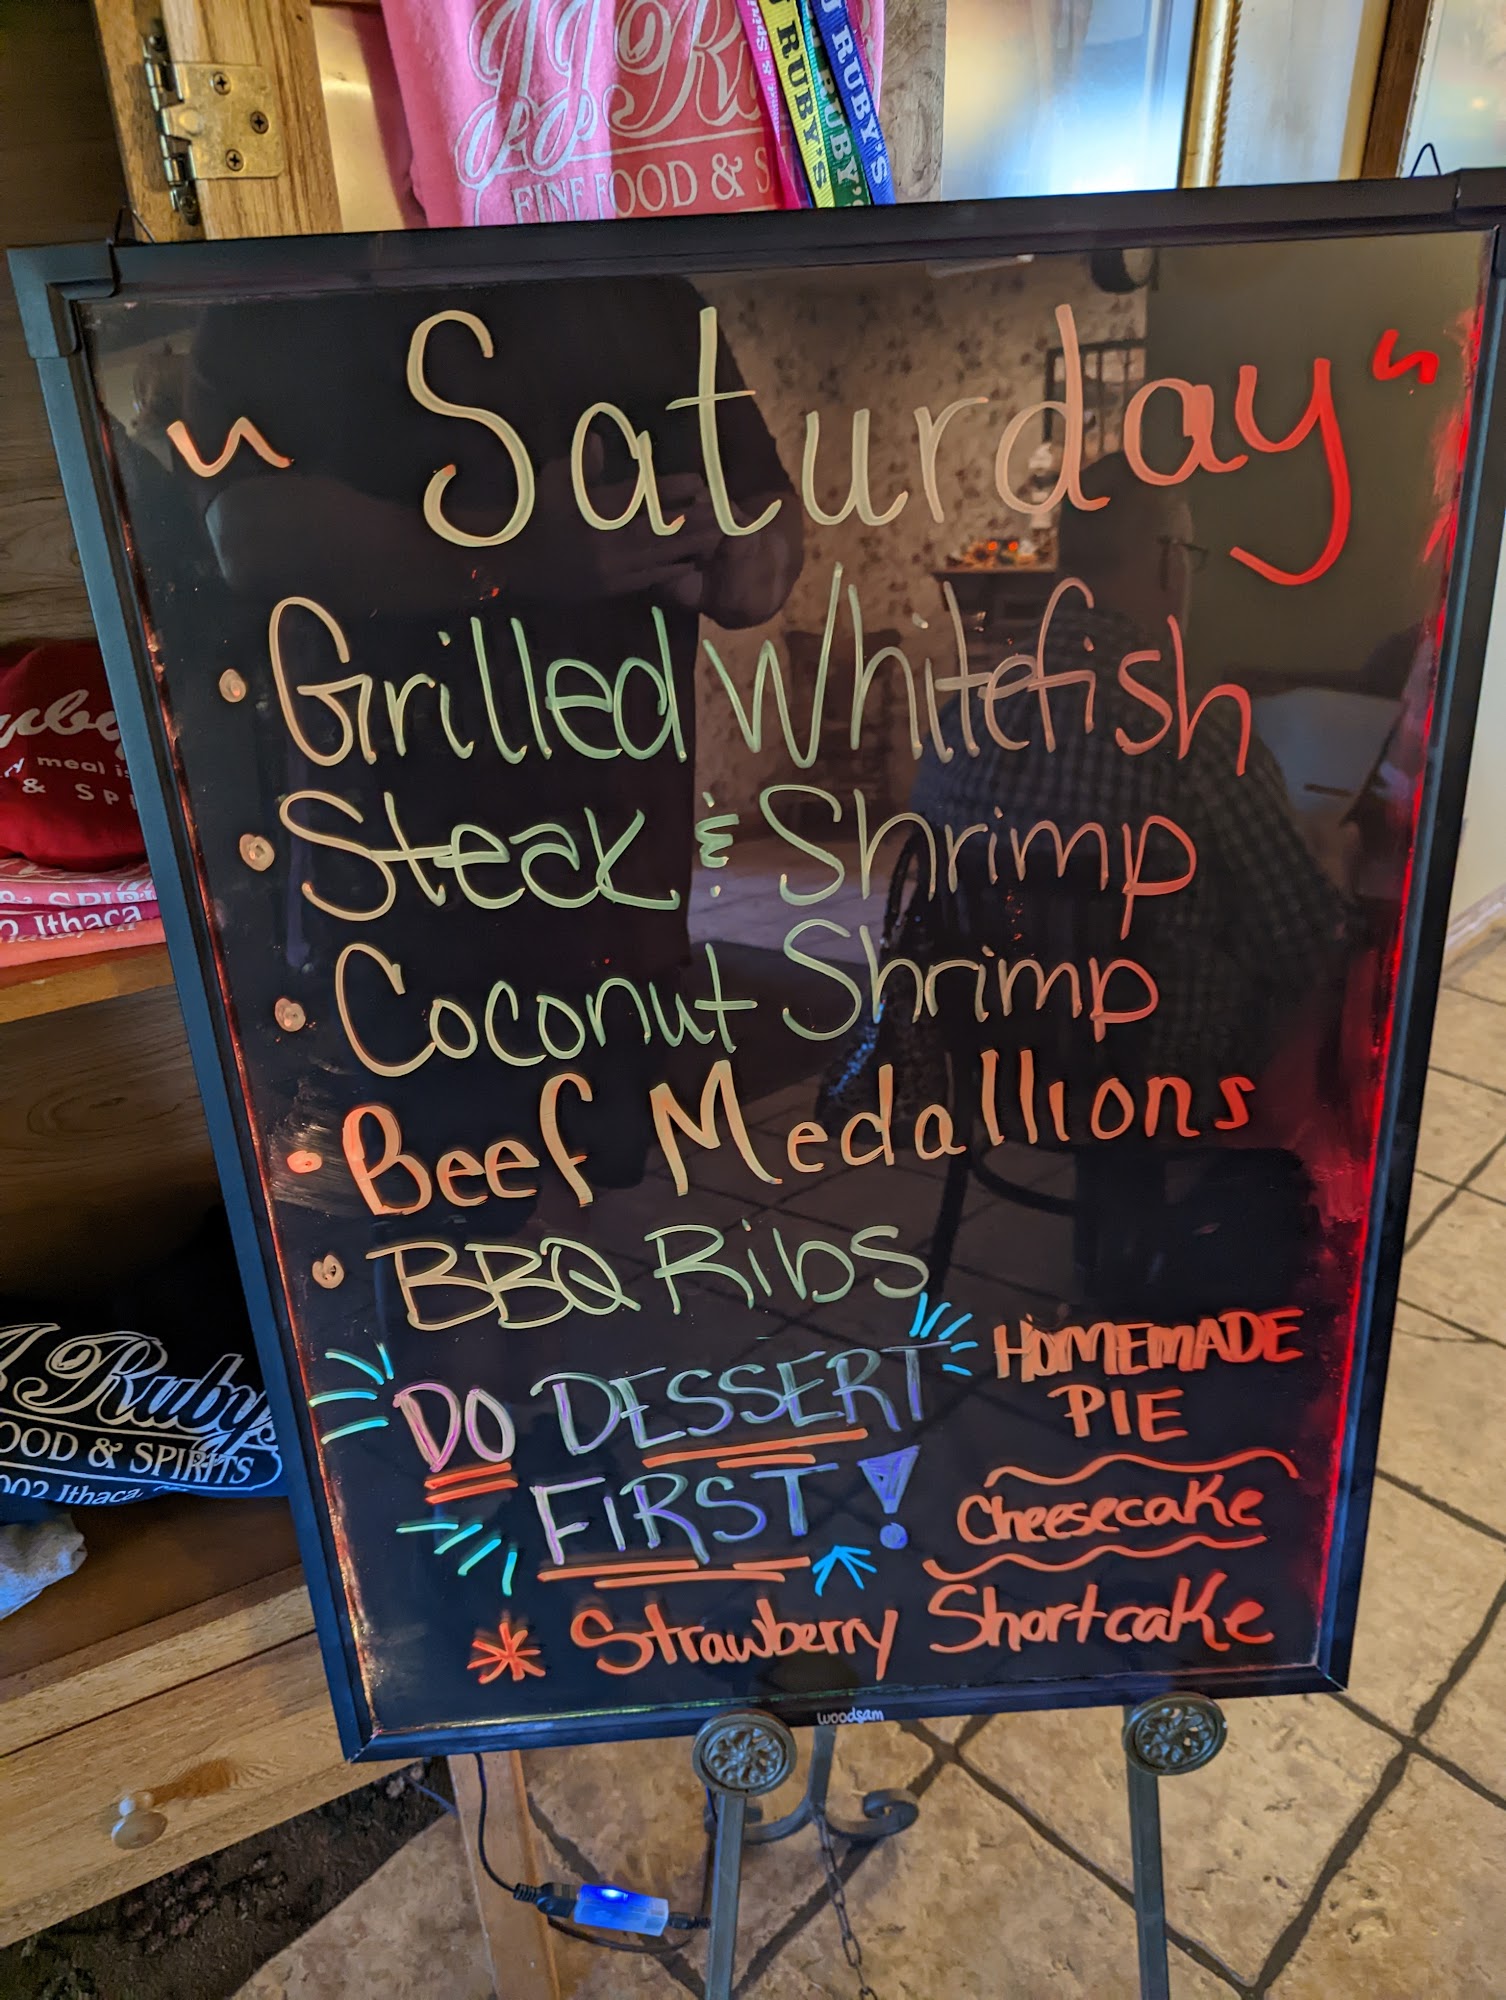 JJ Ru
FINE FOOD & S
RUBY'S
RUBY'S
RUBY'
~ Saturday ~
• Grilled Whitefish
• Steak & Shrimp
• Coconut Shrimp
• Beef Medallions
• BBQ Ribs
DO DESSERT
FIRST!
HOMEMADE
PIE
Cheesecake
* Strawberry Shortcake
woodsam
uby
ry meal is
& Spi
& SPIRIT
2 Ithaca
J Ruby's
OOD & SPIRITS
002 Ithaca,